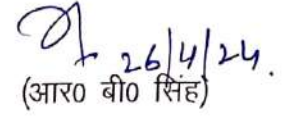 26/4/24.
(आर0 बी0 सिंह)